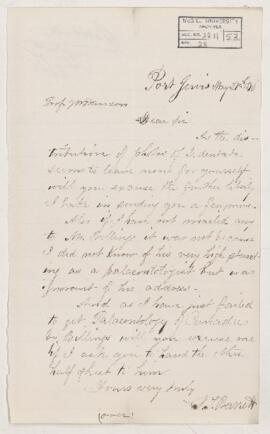 McGILL UNIVERSITY
ARCHIVES
ACC. NO. 2211 53
REF. 25
Port Jervis May
Prof J W Dawson
Dear Sir
As the dis-
tribution of of
seems to leave more for yourself
will you excuse the further liberty
I take in sending you a fragment.
Also if I have not mailed any
to Mr Billings it was not because
I did not know of his very high stand-
ing as a palaeontologist but was
ignorant of his address.
And as I have just failed
to get Palaeontology of Canada
by Billings will you excuse me
if I ask you to hand the other
half sheet to him
Yours very truly
S. T. Barrett
(over)